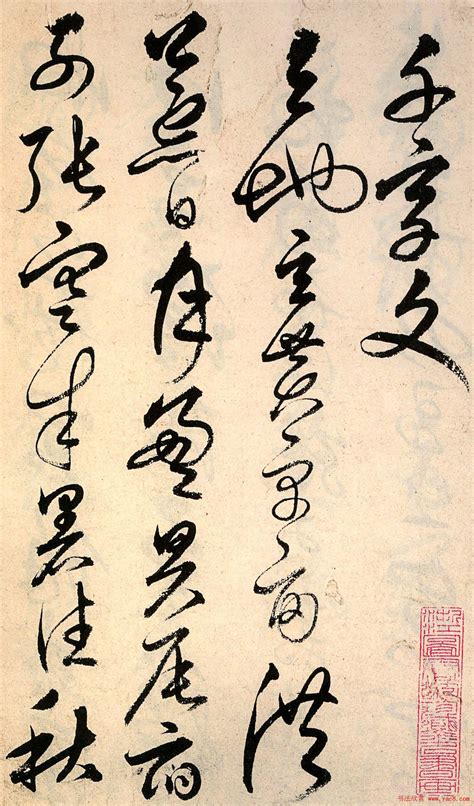 千字文
天地玄黃宇宙洪
荒日月盈昃辰宿
列張寒來暑往秋
书法欣赏
www.yac8.com